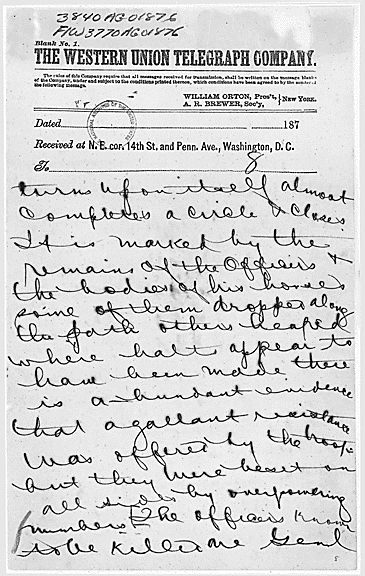 3840 AGO 1876
F/W 3770 AGO 1876
Blank No. 1.
THE WESTERN UNION TELEGRAPH COMPANY.
The rules of this Company require that all messages received for transmission, shall be written on the message blanks
of the Company, under and subject to the conditions printed thereon, which conditions have been agreed to by the sender of
the following message.
WILLIAM ORTON, Pres't,
A. R. BREWER, Sec'y,
NEW YORK.
Dated 187
Received at N. E. cor. 14th St. and Penn. Ave., Washington, D. C.
To 8
turns upon itself almost
completes a circle & closes
It is marked by the
remains of the Officers &
the bodies of his horses
some of them dropped along
the path others heaped
where halt appear to
have been made there
is abundant evidence
that a gallant resistance
was offered by the troops
but they were beset on
all sides by overpowering
numbers The officers known
to be killed are Genl
8